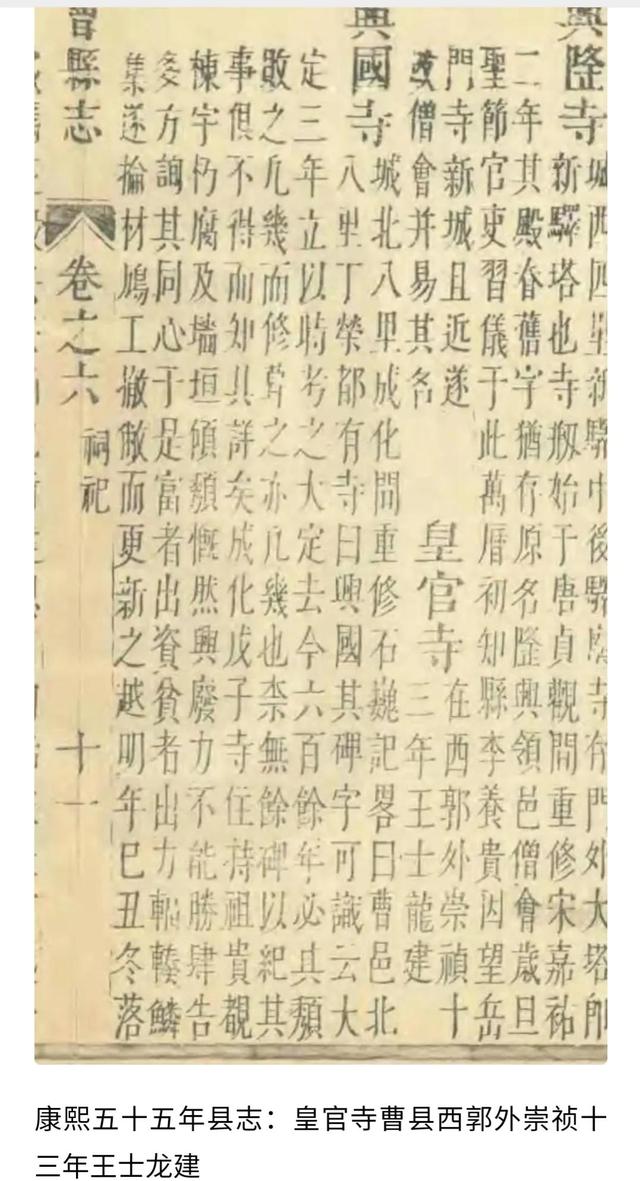 興隆寺
城西四里新驛中後驛廢寺有門外大塔即
新驛塔也寺剏始于唐貞觀間重修宋嘉祐
二年其殿脊舊字猶存原名隆興領邑僧會歲旦
聖節官吏習儀于此萬曆初知縣李養貴因望岳
門寺新城且近遂
改僧會并易其名
皇官寺
在西郭外崇禎十
三年王士龍建
興國寺
城北八里成化間重修石巍記畧曰曹邑北
八里丁榮都有寺曰興國其碑字可識云大
定三年立以時考之大定去今六百餘年必其頽
敗之凢幾而修葺之亦凢幾也柰無餘碑以紀其
事俱不得而知其詳矣成化戊子寺住持祖貴覩
棟宇朽腐及墻垣傾頽慨然興廢力不能勝肆告
多方詢其同心于是富者出資貧者出力輻輳鱗
集遂掄材鳩工撤敝而更新之越明年巳丑冬落
曹縣志 卷之六 祠祀 十一
康熙五十五年县志：皇官寺曹县西郭外崇祯十
三年王士龙建